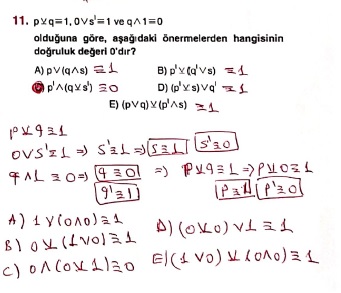 11. p⊻q≡1, 0∨s'≡1 ve q∧1≡0
olduğuna göre, aşağıdaki önermelerden hangisinin
doğruluk değeri 0'dır?
A) p∨(q∧s) ≡1 B) p'⊻(q'∨s) ≡1
p'∧(q⊻s') ≡0 D) (p'⊻s)∨q' ≡1
E) (p∨q)⊻(p'∧s) ≡1
p⊻q≡1
0∨s'≡1 ⇒ s'≡1 ⇒ s≡1 s'≡0
q∧1≡0 ⇒ q≡0 ⇒ p⊻q≡1 ⇒ p⊻0≡1
q'≡1 p≡1 p'≡0
A) 1∨(0∧0)≡1 D) (0⊻0)∨1≡1
B) 0⊻(1∨0)≡1
C) 0∧(0⊻1)≡0 E) (1∨0)⊻(0∧0)≡1